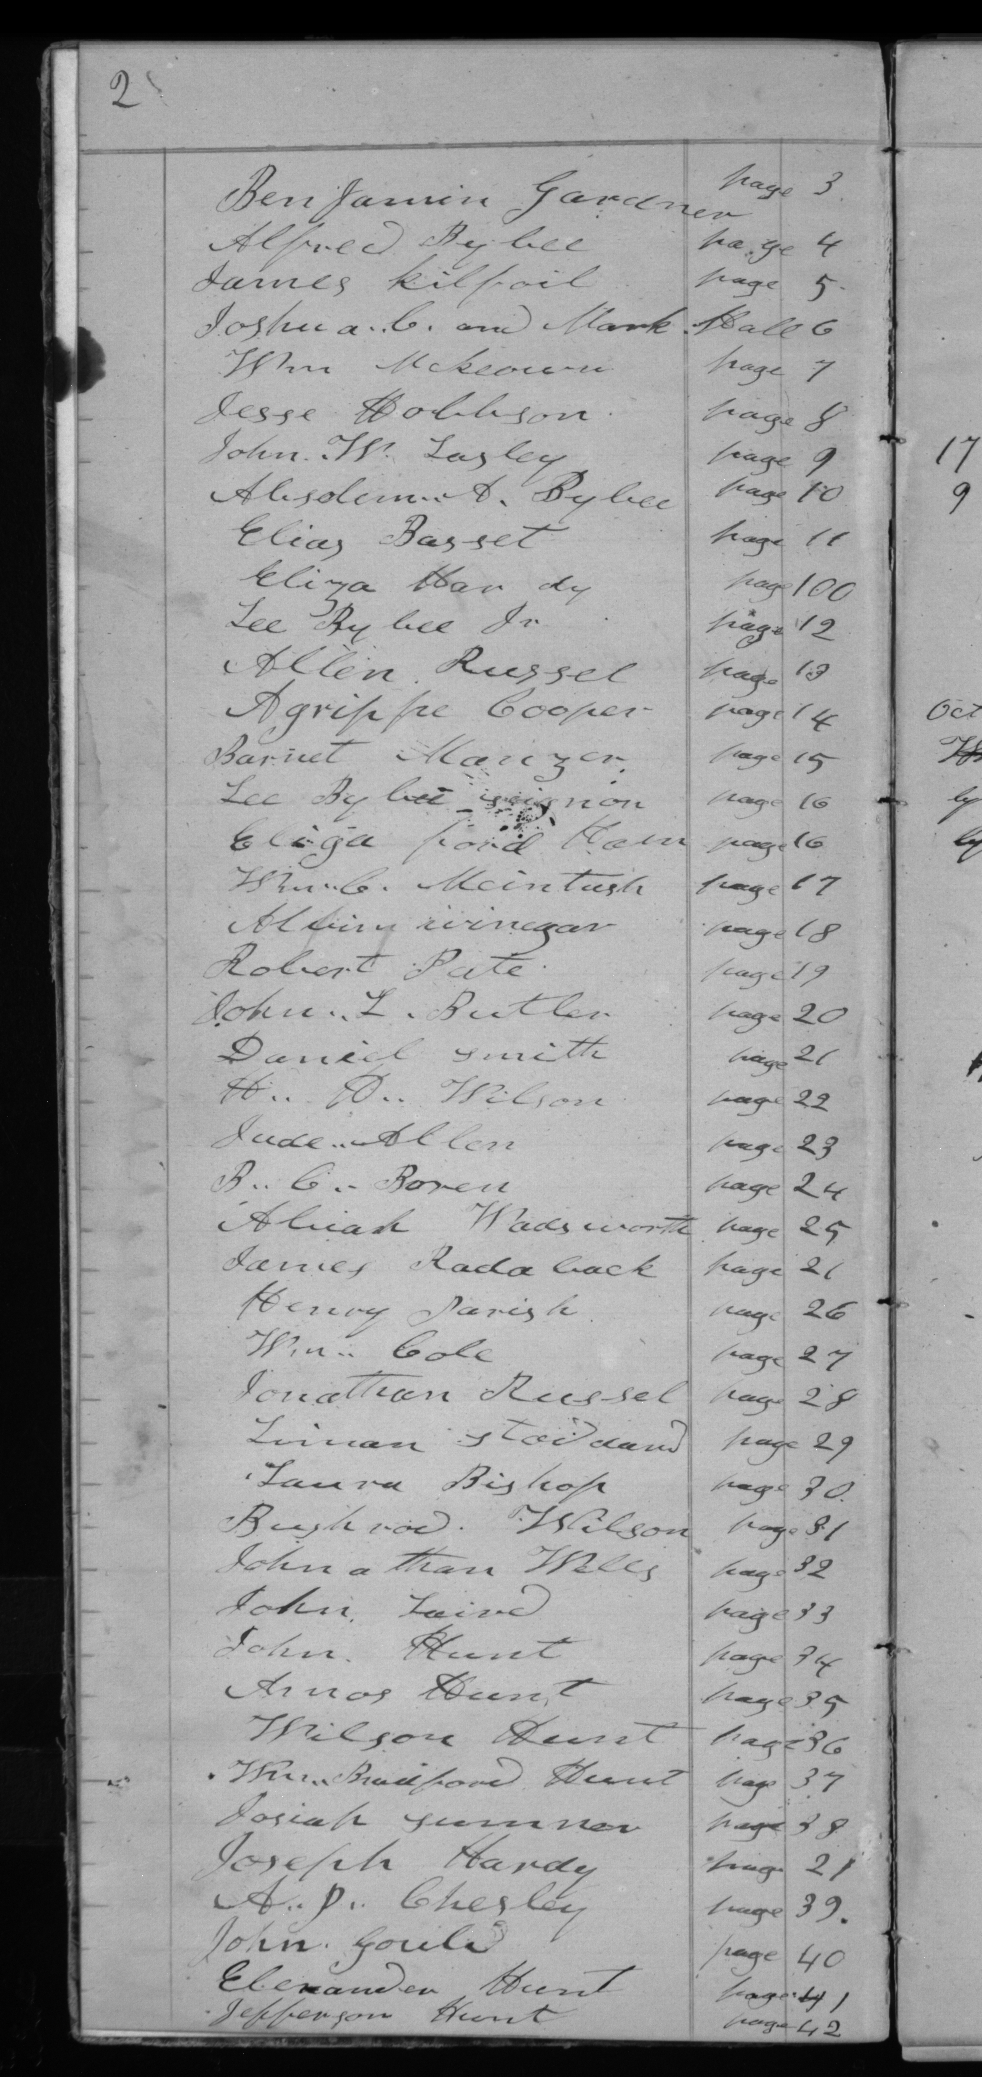 2
Benjamin Gardner page 3
Alfred Bybee page 4
James Kilfoil page 5
Joshua. C. and Mark Hall 6
Wm McKeown page 7
Jesse Hobbson page 8
John. W. Lasley page 9
Absolem. A. Bybee page 10
Elias Basset page 11
Eliza Hardy page 100
Lee Bybee Jr page 12
Allen Russel page 13
Agrippe Cooper page 14
Barnet Manzer page 15
Lee Bybee page 16
Eliga ford Ham page 16
Wm. C. Mcintush page 17
winegar page 18
Robert Pate page 19
John. L. Butler page 20
Daniel Smith page 21
H. D. Wilson page 22
Jude Allen page 23
B. C. Boren page 24
Abiah Wadsworth page 25
James Radaback page 21
Henry Parish page 26
Wm. Cole page 27
Jonathan Russel page 28
Liman Stoddard page 29
Laura Bishop page 30
Bushrod. Wilson page 31
Johnathan Wells page 32
John Laird page 33
John. Hunt page 34
Amos Hunt page 35
Wilson Hunt page 36
Wm. Bradford Hunt page 37
Josiah Sumner page 38
Joseph Hardy page 21
A. P. Chesley page 39.
John. Gould page 40
Elexander Hunt page 41
Jefferson Hunt page 42
17
9
Oct
by
by